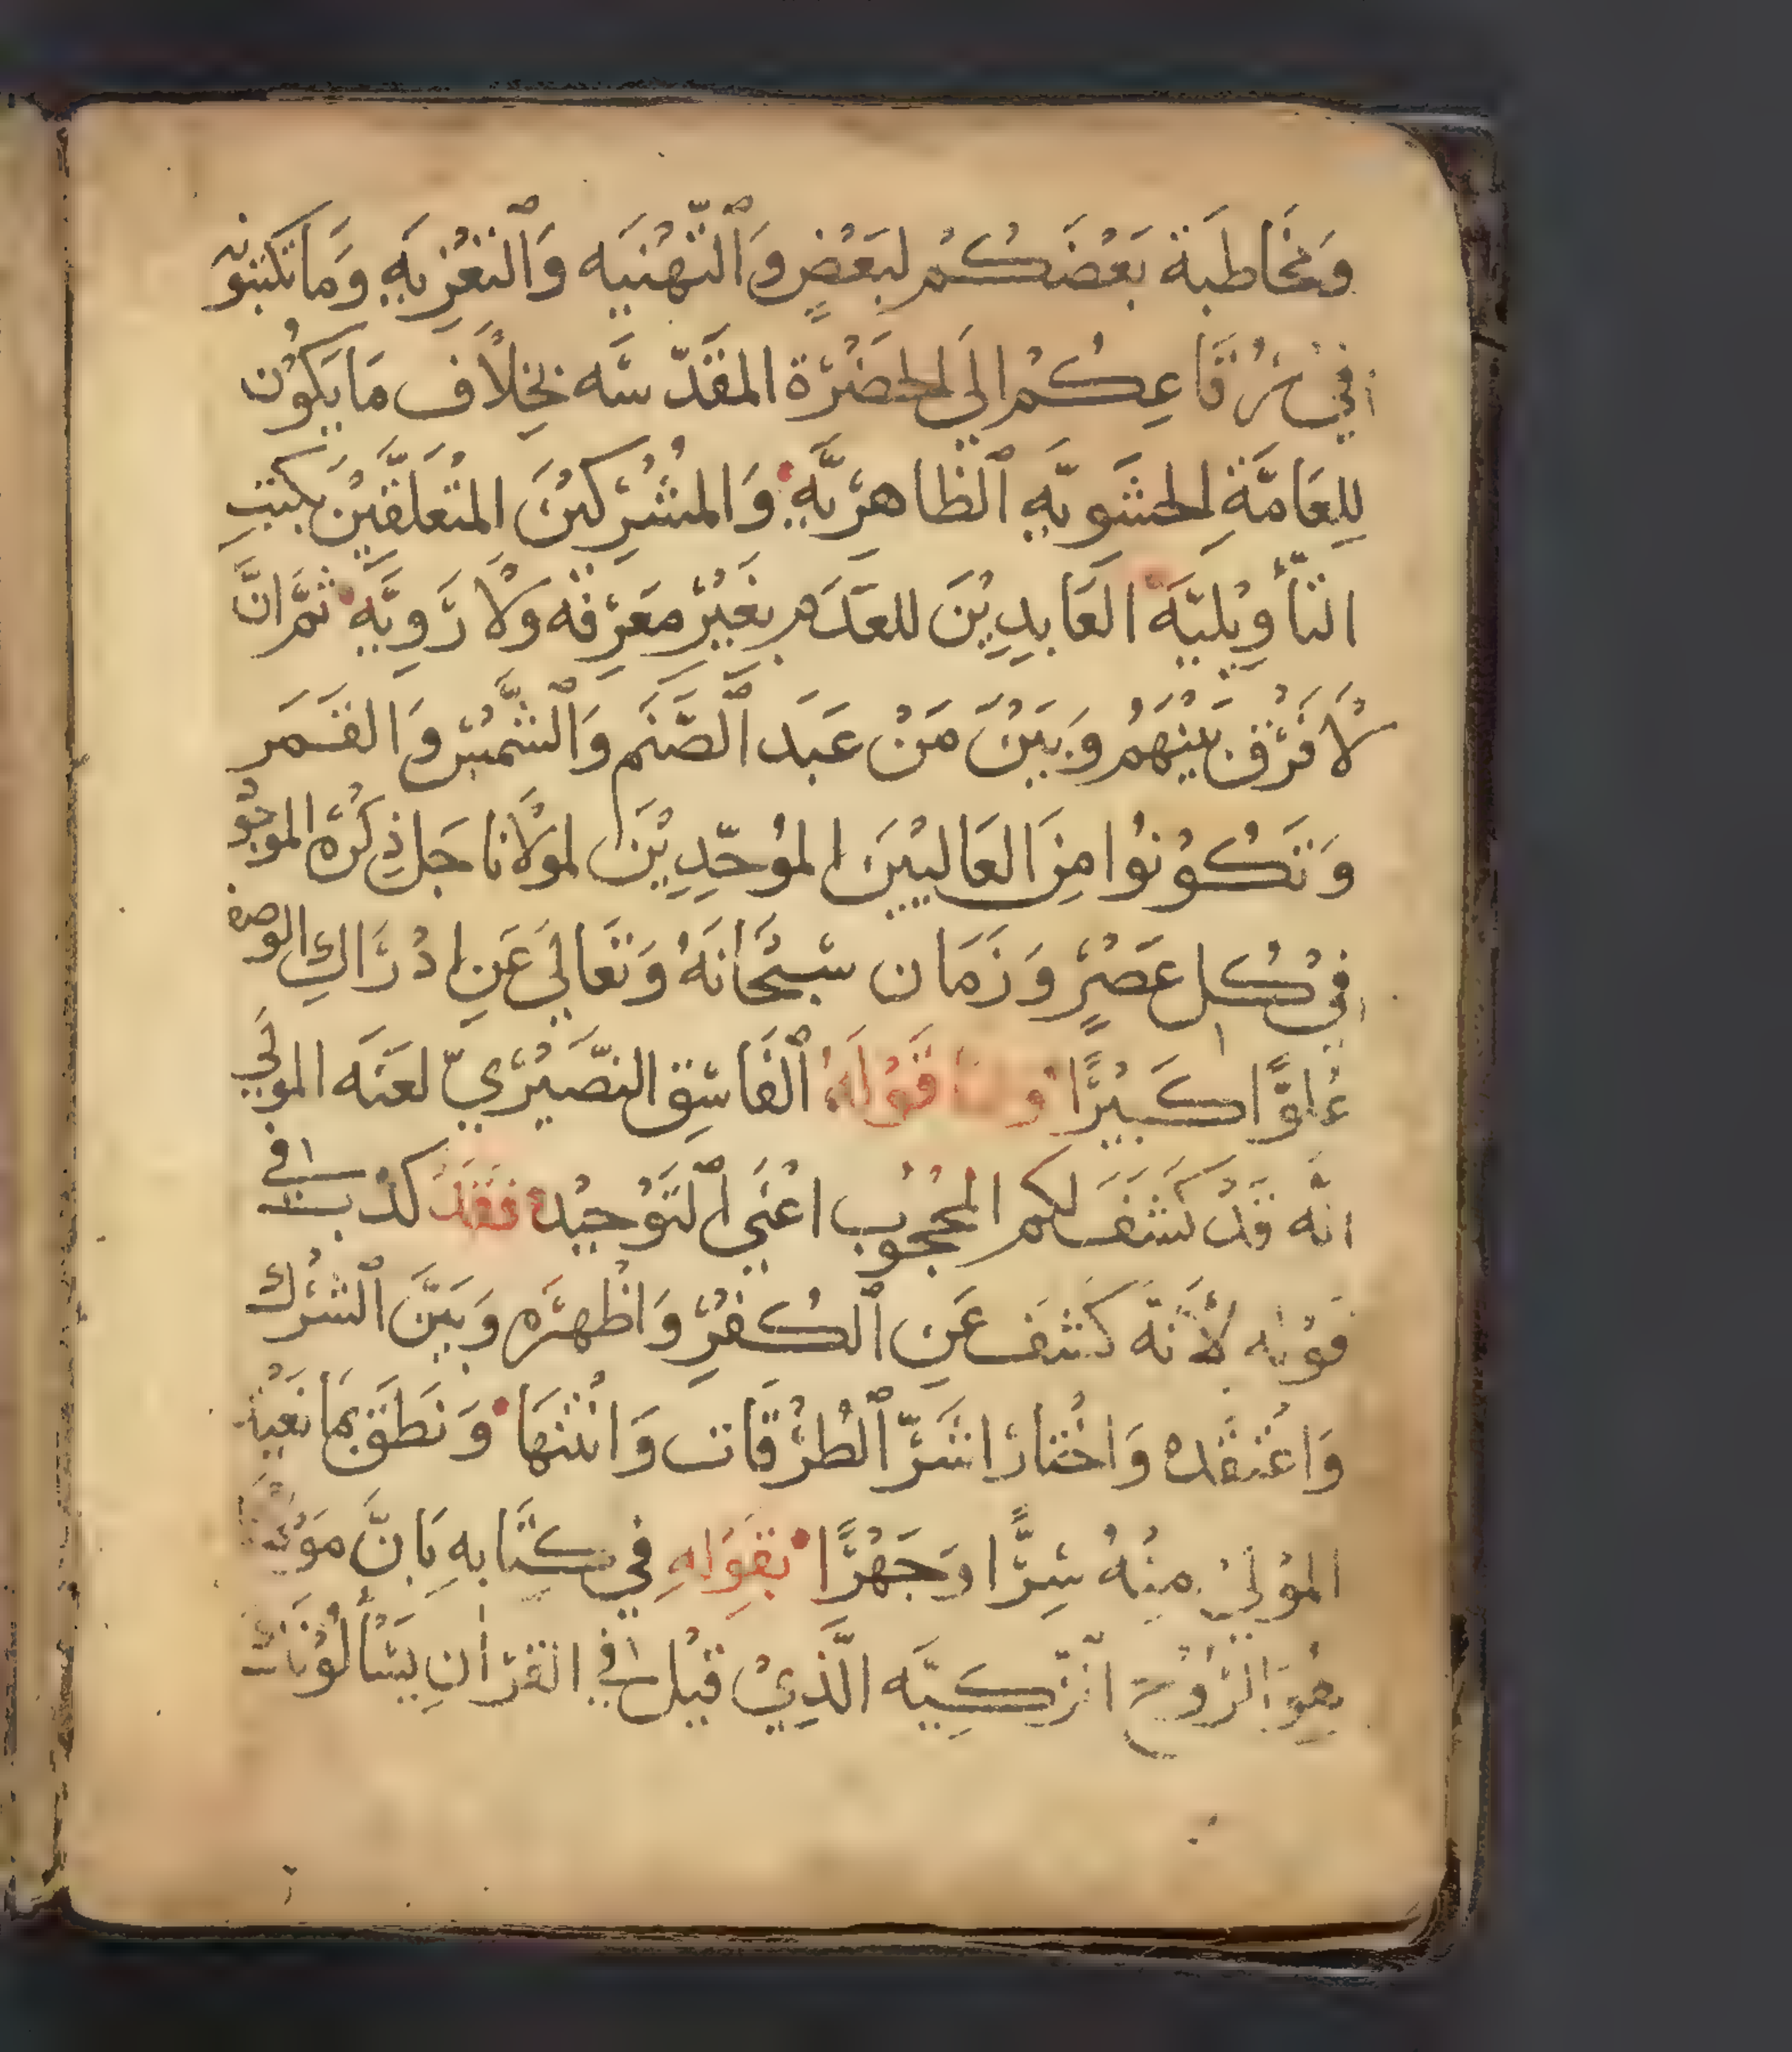 وَمُخَاطَبَة بَعْضَكُمْ لبَعْضٍ وَٱلتّهْنيَه وَٱلتَعْزِيَهِ وَمَا تَكتبونه
فيْ رُقَاعِكُمْ الَي الحَضْرَة المقَدّسَه بخِلَاف مَا يَكوُن
لِلعَامَّةِ الحشَويَّهِ ٱلظَاهِريَّهِ وَالمُشْرِكيْنَ المتْعَلّقيْنَ بكتبِ
التأويْليَّه العَابدِيْنَ للعَدَم بغَيْر معَرِفَه ولَا رَويَّهِ ثمَّ انَّ
لَا فَرْق بَيْنَهُم وَبَيْنَ مَنْ عَبَد ٱلصَّنَم وَٱلشَّمْس وَالقَمَر
وَتَكُوْنوُا مِنَ العَالييْنَ الموُحّدِيْنَ لموْلَانا جَل ذِكْرَه الموجُو
فيْ كُل عَصْرٍ وَزَمَان سُبْحَانَهُ وَتَعَالَي عَنِ ادْرَاكِ الوصف
عُلوًّا كَبيْرًا وامَّا قَوْلهُ ٱلفَاسِق النصَيْرِيّ لعَنَه الموْلَي
انَّه قَدْ كَشَفَ لكم المحْجُوْب اعْنَي ٱلتَوْحيْد فقَدْ كَذب في
قوْله لأنَّه كَشَف عَنِ ٱلكُفْرِ وَاظْهَرَه وَبَيَّنَ ٱلشرْك
وَاعْتقَده وَاخْتَار اشَرّ ٱلطُرْقَات وَانْتنهَا وَنَطَق بمَا
الموْليْ منْهُ سِرًّا وَجَهْرًا بقَوَلهِ في كتَابهِ بَانَّ
هُوَ الرُوْح الزكيَّه الَّذِيْ قيْل في القرْانِ يَسْألُوْنَكَ